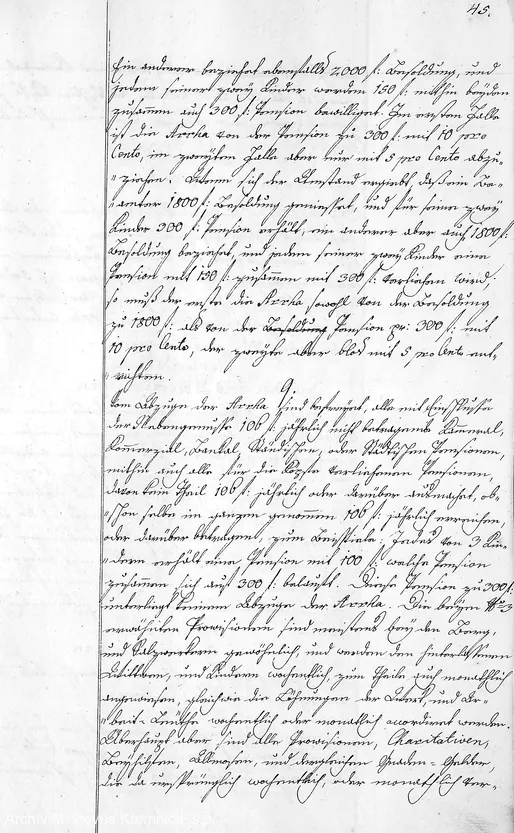 45.
Ein anderer beziehet ebenfalls 2000 f: Besoldung, und
jedem seiner zwey Kinder werden 150 f: mithin beyden
zusammen auch 300 f: Pension bewilliget. Im ersten Falle
ist die Arrha von der Pension zu 300 f: mit 10 pro
Cento, im zweyten Falle aber nur mit 5 pro Cento abzu-
"ziehen. Wenn sich der Umstand ergiebt, daß ein Be-
"amter 1800 f: Besoldung geniesset, und für seine zwey
Kinder 300 f: Pension erhält, ein anderer aber auch 1800 f:
Besoldung beziehet, und jedem seiner zwey Kinder eine
Pension mit 150 f: zusammen mit 300 f: verliehen wird;
so muß der erste die Arrha sowohl von der Besoldung
zu 1800 f: als von der Besoldung Pension pr: 300 f: mit
10 pro Cento, der zweyte aber blos mit 5 pro Cento ent-
"richten.
9.
Vom Abzuge der Arrha sind befreyet, alle mit Einschluße
der Nebengenüsse 106 f: jährlich nicht betragende Kameral,
Kommerzial, Bankal, Ständischen, oder Städtischen Pensionen,
mithin auch alle für die Köpfe verliehenen Pensionen,
davon kein Theil 106 f: jährlich oder darüber ausmachet, ob-
"schon selbe im ganzen genommen 106 f: jährlich erreichen,
oder darüber betragen, zum Beispiele: Jedes von 3 Kin-
"dern erhält eine Pension mit 100 f: welche Pension
zusammen sich auf 300 f: belauft. Diese Pension zu 300 f:
unterliegt keinem Abzuge der Arrha. Die beym 3
erwähnten Provisionen sind meistens bey den Berg,
und Salzwerkern gewöhnlich, und werden den hinterlassenen
Wittwen, und Kindern wochentlich, zum Theile auch monathlich
angewiesen, gleichwie die Löhnungen der Werk, und Ar-
"beit-Leuthe wochentlich oder monatlich accordiret werden.
Überhaupt aber sind alle Provisionen, Charitativen,
Beyhilfen, Allmosen, und dergleichen Gnaden-Gelder,
die da ursprünglich wochentlich, oder monathlich ver-